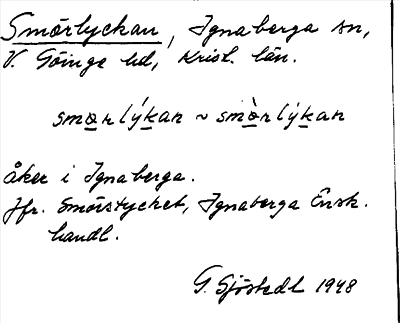 Smörlyckan, Ignaberga sn,
V. Göinge hd, Krist. län.
smœrlýkan ~ smœ̀rlýkan
åker i Ignaberga.
Jfr. Smörstycket, Ignaberga Ensk.
handl.
G. Sjöstedt 1948